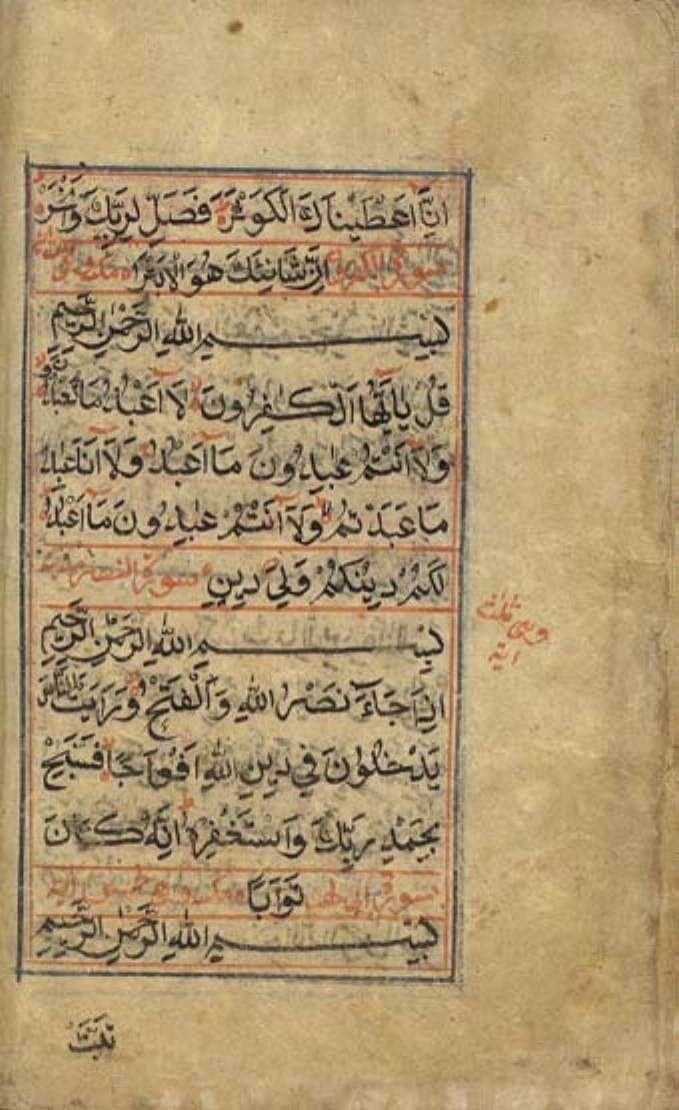 اِنَّا اَعْطَيْنَاكَ الْكَوْثَرَ فَصَلِّ لِرَبِّكَ وَانْحَرْ
سورة الكافرون اِنَّ شَانِئَكَ هُوَ الْاَبْتَرُ مكية وهى
بِسْمِ اللهِ الرَّحْمٰنِ الرَّحِيمِ
قُلْ يَا اَيُّهَا الْكٰفِرُونَ لَا اَعْبُدُ مَا تَعْبُدُونَ
وَلَا اَنْتُمْ عٰبِدُونَ مَا اَعْبُدُ وَلَا اَنَا عَابِدٌ
مَا عَبَدْتُمْ وَلَا اَنْتُمْ عٰبِدُونَ مَا اَعْبُدُ
لَكُمْ دِينُكُمْ وَلِيَ دِينِ سورة النصر
بِسْمِ اللهِ الرَّحْمٰنِ الرَّحِيمِ
اِذَا جَاءَ نَصْرُ اللهِ وَالْفَتْحُ وَرَاَيْتَ النَّاسَ
يَدْخُلُونَ فِي دِينِ اللهِ اَفْوَاجًا فَسَبِّحْ
بِحَمْدِ رَبِّكَ وَاسْتَغْفِرْهُ اِنَّهُ كَانَ
سورة ابى لهب تَوَّابًا مكية وهى خمس اية
بِسْمِ اللهِ الرَّحْمٰنِ الرَّحِيمِ
وهى ثلث
اية
تَبَّتْ